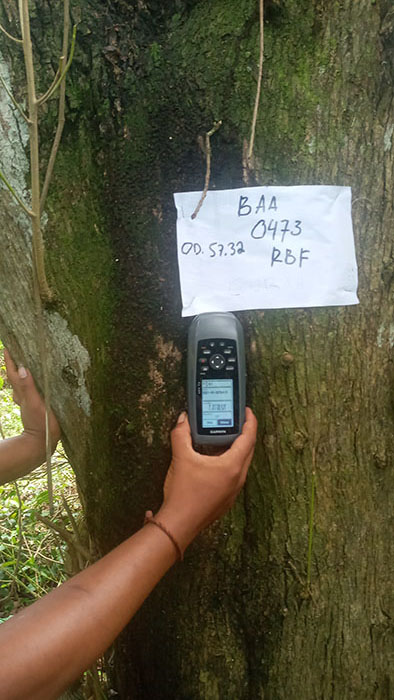 BAA
0473
OD. 57.32 RBF
GARMIN